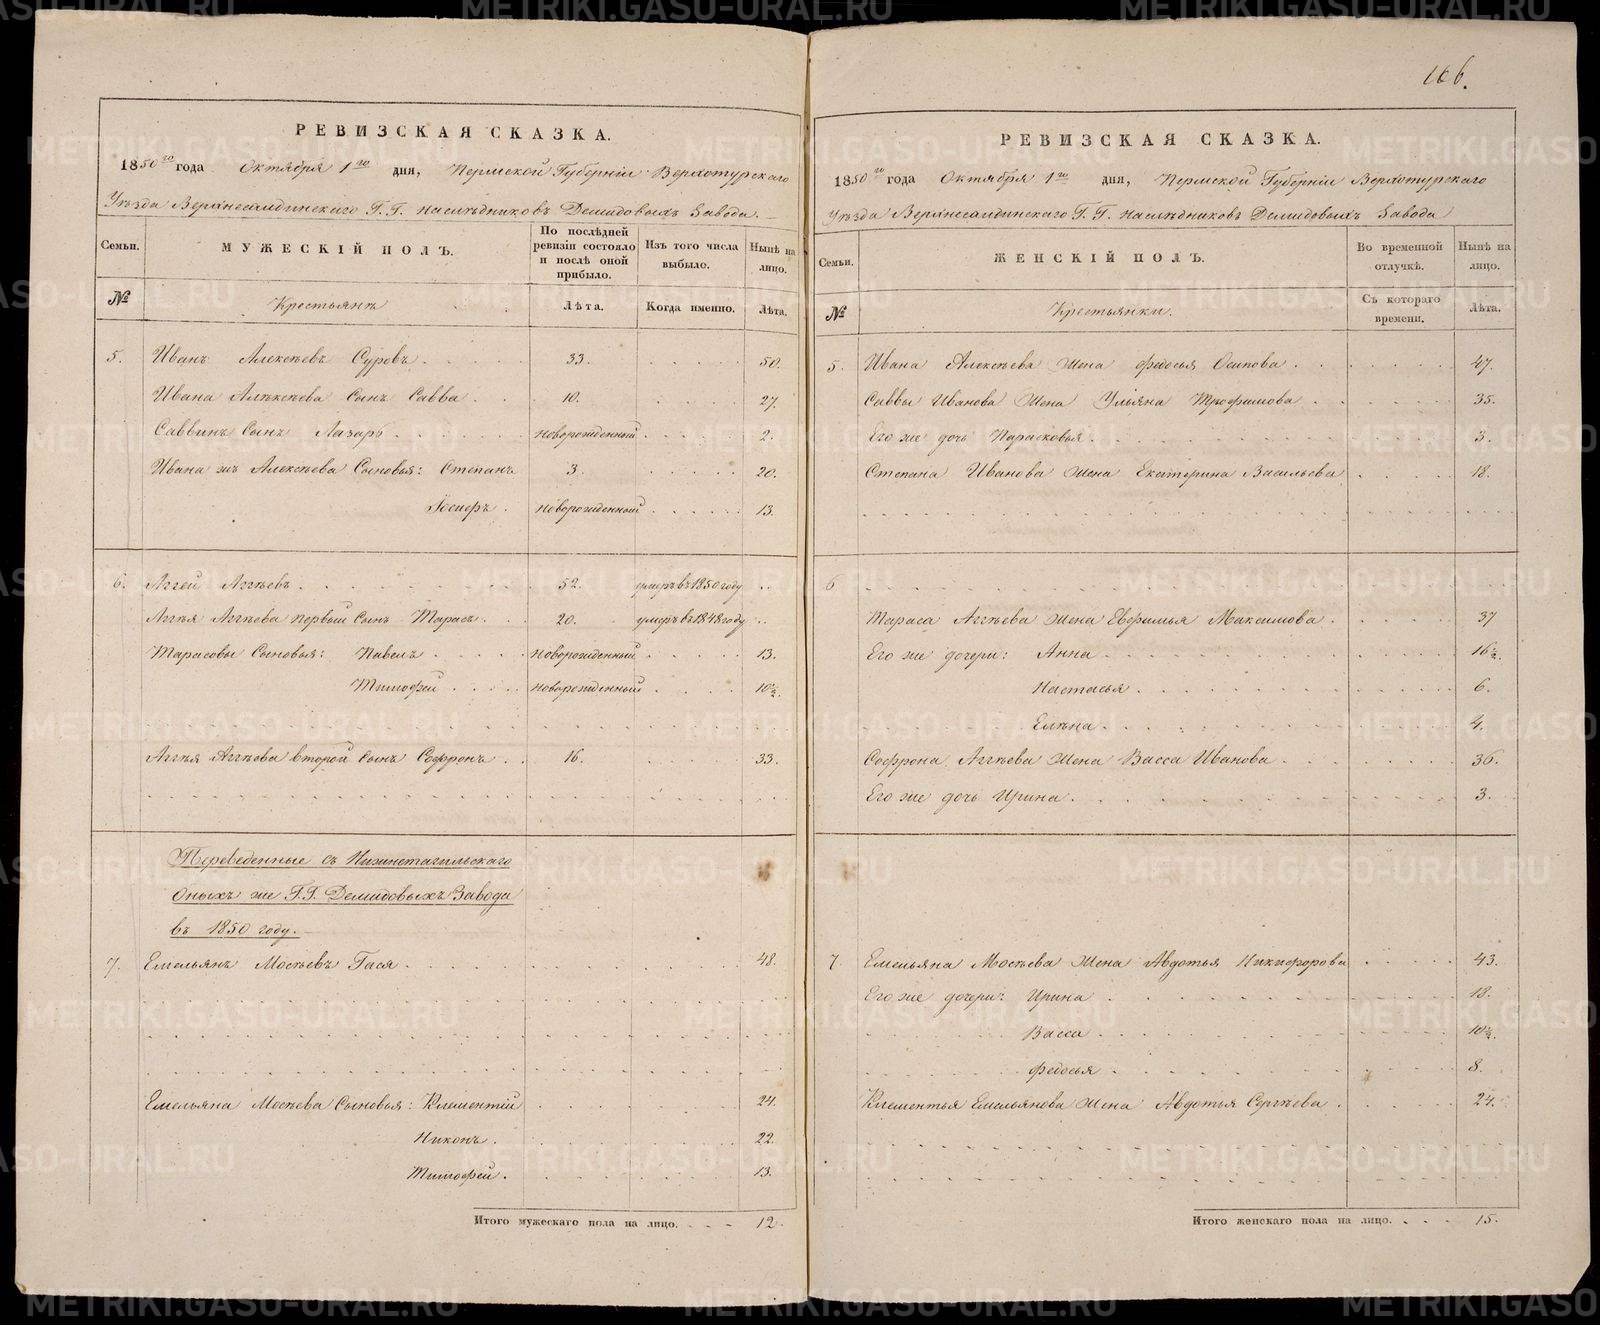 166.
РЕВИЗСКАЯ СКАЗКА.
1850го года Октября 1го дня, Пермской Губерніи Верхотурскаго
Уѣзда Верхнесалдинскаго Г.Г. наслѣдниковъ Демидовыхъ Завода.
Семьи. МУЖЕСКІЙ ПОЛЪ. По послѣдней ревизіи состояло и послѣ оной прибыло. Изъ того числа выбыло. Нынѣ на лицо.
№ Крестьянъ Лѣта. Когда именно. Лѣта.
5. Иванъ Алексѣевъ Суровъ 33. 50.
Ивана Алексѣева Сынъ Савва 10. 27.
Саввинъ Сынъ Лазарь новорожденный 2.
Ивана жъ Алексѣева Сыновья: Степанъ 3. 20.
Іосифъ новорожденный 13.
6. Аггей Аггѣевъ 52. умеръ въ 1850 году
Аггѣя Аггѣева первый Сынъ Тарасъ 20. умеръ въ 1848 году
Тарасовы Сыновья: Павелъ новорожденный 13.
Тимофей новорожденный 10½.
Аггѣя Аггѣева второй Сынъ Софронъ 16. 33.
Переведенные съ Нижнетагильскаго
Оныхъ же Г.Г. Демидовыхъ Завода
въ 1850 году.
7. Емельянъ Мосѣевъ Гася 48.
Емельяна Мосѣева Сыновья: Клементій 24.
Никонъ. 22.
Тимофей. 13.
Итого мужескаго пола на лицо. 12.
РЕВИЗСКАЯ СКАЗКА.
1850го года Октября 1го дня, Пермской Губерніи Верхотурскаго
Уѣзда Верхнесалдинскаго Г.Г. наслѣдниковъ Демидовыхъ Завода
Семьи. ЖЕНСКІЙ ПОЛЪ. Во временной отлучкѣ. Нынѣ на лицо.
№ Крестьянки. Съ котораго времени. Лѣта.
5. Ивана Алексѣева Жена Федосья Осипова 47.
Саввы Иванова Жена Ульяна Трофимова 35.
Его же дочь Парасковья 3.
Степана Иванова Жена Екатерина Васильева 18.
6
Тараса Аггѣева Жена Евфимья Максимова 37
Его же дочери: Анна 16½.
Настасья 6.
Елѣна 4.
Софрона Аггѣева Жена Васса Иванова 36.
Его же дочь Ирина 3.
7. Емельяна Мосѣева Жена Авдотья Никифорова 43.
Его же дочери: Ирина 13.
Васса 10½.
Федосья 8.
Клементья Емельянова Жена Авдотья Сергѣева 24.
Итого женскаго пола на лицо. 15.
METRIKI.GASO-URAL.RU